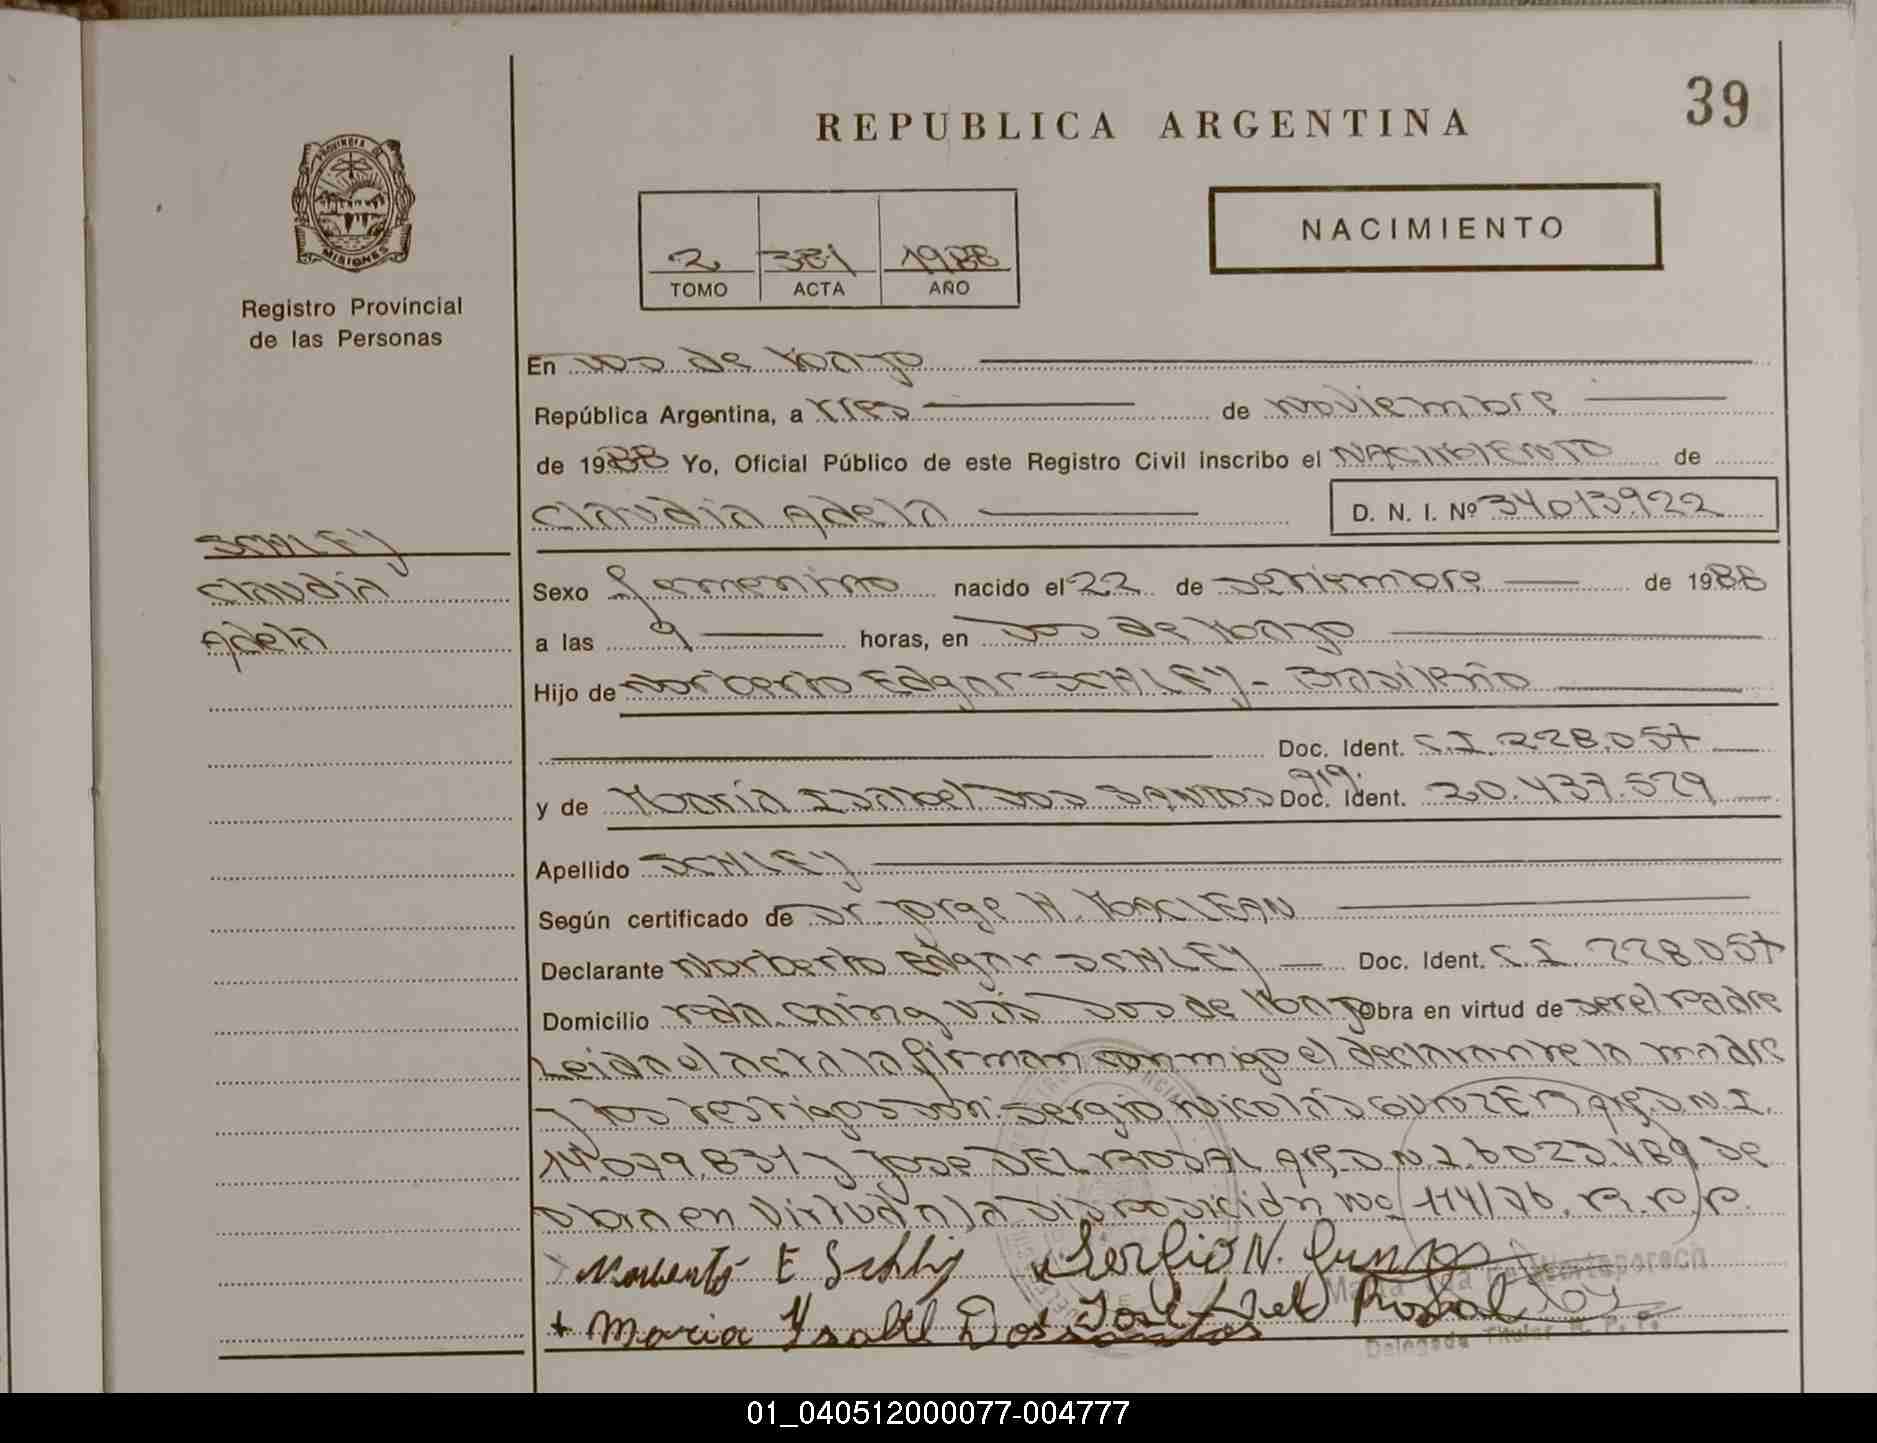 39
REPUBLICA ARGENTINA
PROVINCIA DE
MISIONES
Registro Provincial
de las Personas
2 381 1988
TOMO ACTA AÑO
NACIMIENTO
En Dos de Mayo
República Argentina, a tres de noviembre
de 1988 Yo, Oficial Público de este Registro Civil inscribo el NACIMIENTO de
Claudia Adela D. N. I. Nº 34013922
SCHLEY
Claudia
Adela
Sexo femenino nacido el 22 de setiembre de 1988
a las 9 horas, en Dos de Mayo
Hijo de Norberto Edgar SCHLEY - Brasileño
Doc. Ident. C.I. 228.057
y de María Isabel DOS SANTOS arg. Doc. Ident. 20.437.579
Apellido SCHLEY
Según certificado de Dr Jorge H. MACLEAN
Declarante Norberto Edgar SCHLEY Doc. Ident. C.I. 228.057
Domicilio Dos de Mayo Obra en virtud de ser el padre
Leida el acta la firman conmigo el declarante la madre
y los testigos don: Sergio Nicolás GUNZER arg. D.N.I.
14.079.831 y Jose DEL ROSAL arg. D.N.I. 6023.489 Se
obra en virtud a la Disposición No 114/76. R.P.P.
Norberto E Schley Sergio N. Gunzer
+ Maria Ysabel Dos santos José Del Rosal
Delegada Titular R. P. P.
01_040512000077-004777